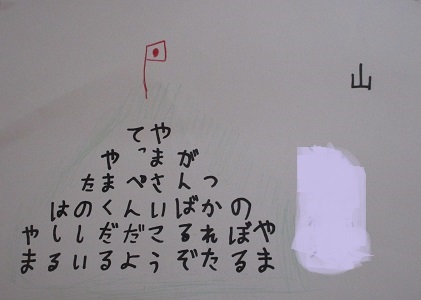 山
やま
のぼる
つかれた
がんばるぞ
やまさいこう
てっぺんだよ
やまくだる
たのしい
はしる
やま